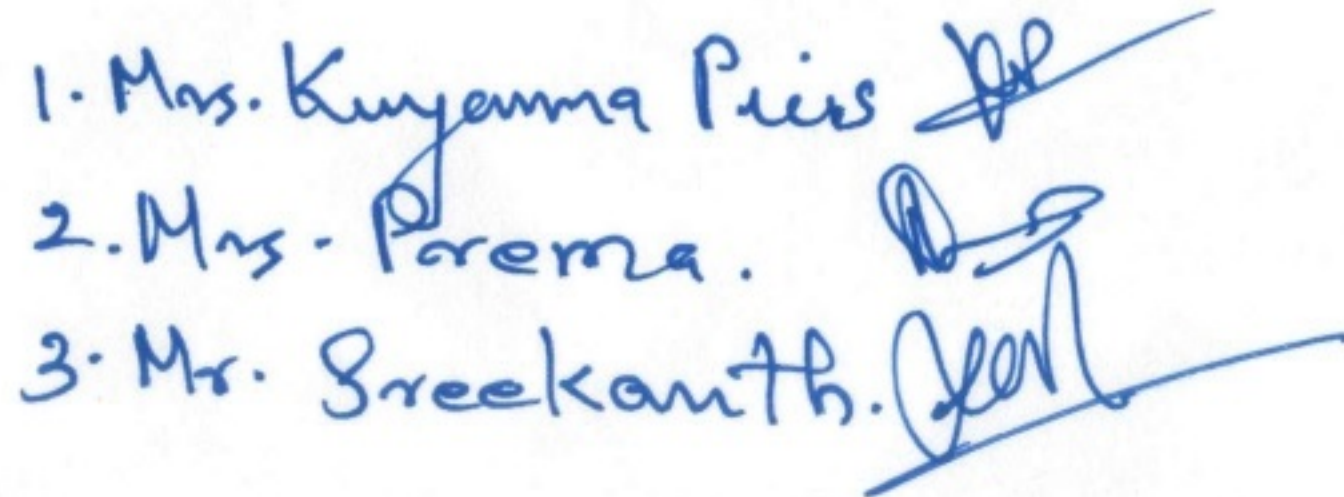 1. Mrs. Kuyamma Piers
2. Mrs. Prema.
3. Mr. Sreekanth.